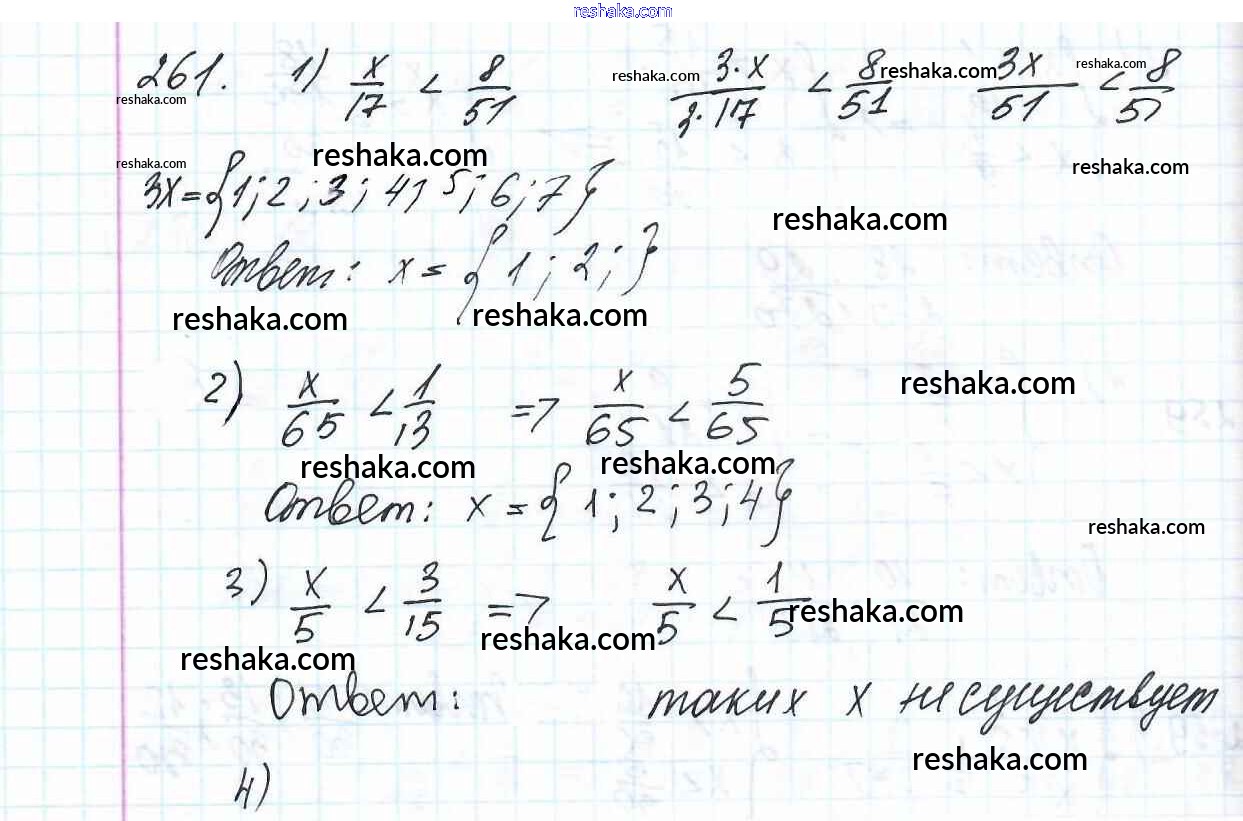 reshaka.com
261. 1) x/17 < 8/51 reshaka.com 3·x/3·17 < 8/51 reshaka.com 3x/51 reshaka.com < 8/51
reshaka.com
reshaka.com reshaka.com reshaka.com
3x = {1; 2; 3; 4; 5; 6; 7}
reshaka.com
Ответ: x = {1; 2;}
reshaka.com reshaka.com
2) x/65 < 1/13 => x/65 < 5/65 reshaka.com
reshaka.com reshaka.com
Ответ: x = {1; 2; 3; 4}
reshaka.com
3) x/5 < 3/15 => x/5 < 1/5 reshaka.com
reshaka.com reshaka.com
Ответ: таких x не существует
reshaka.com
4)